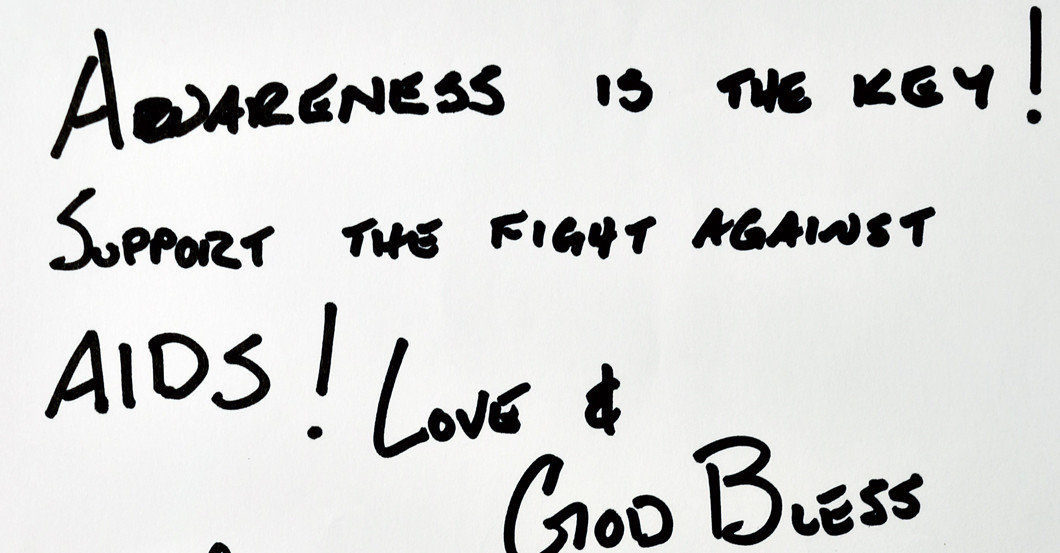 AWARENESS IS THE KEY!
SUPPORT THE FIGHT AGAINST
AIDS! LOVE &
GOD BLESS